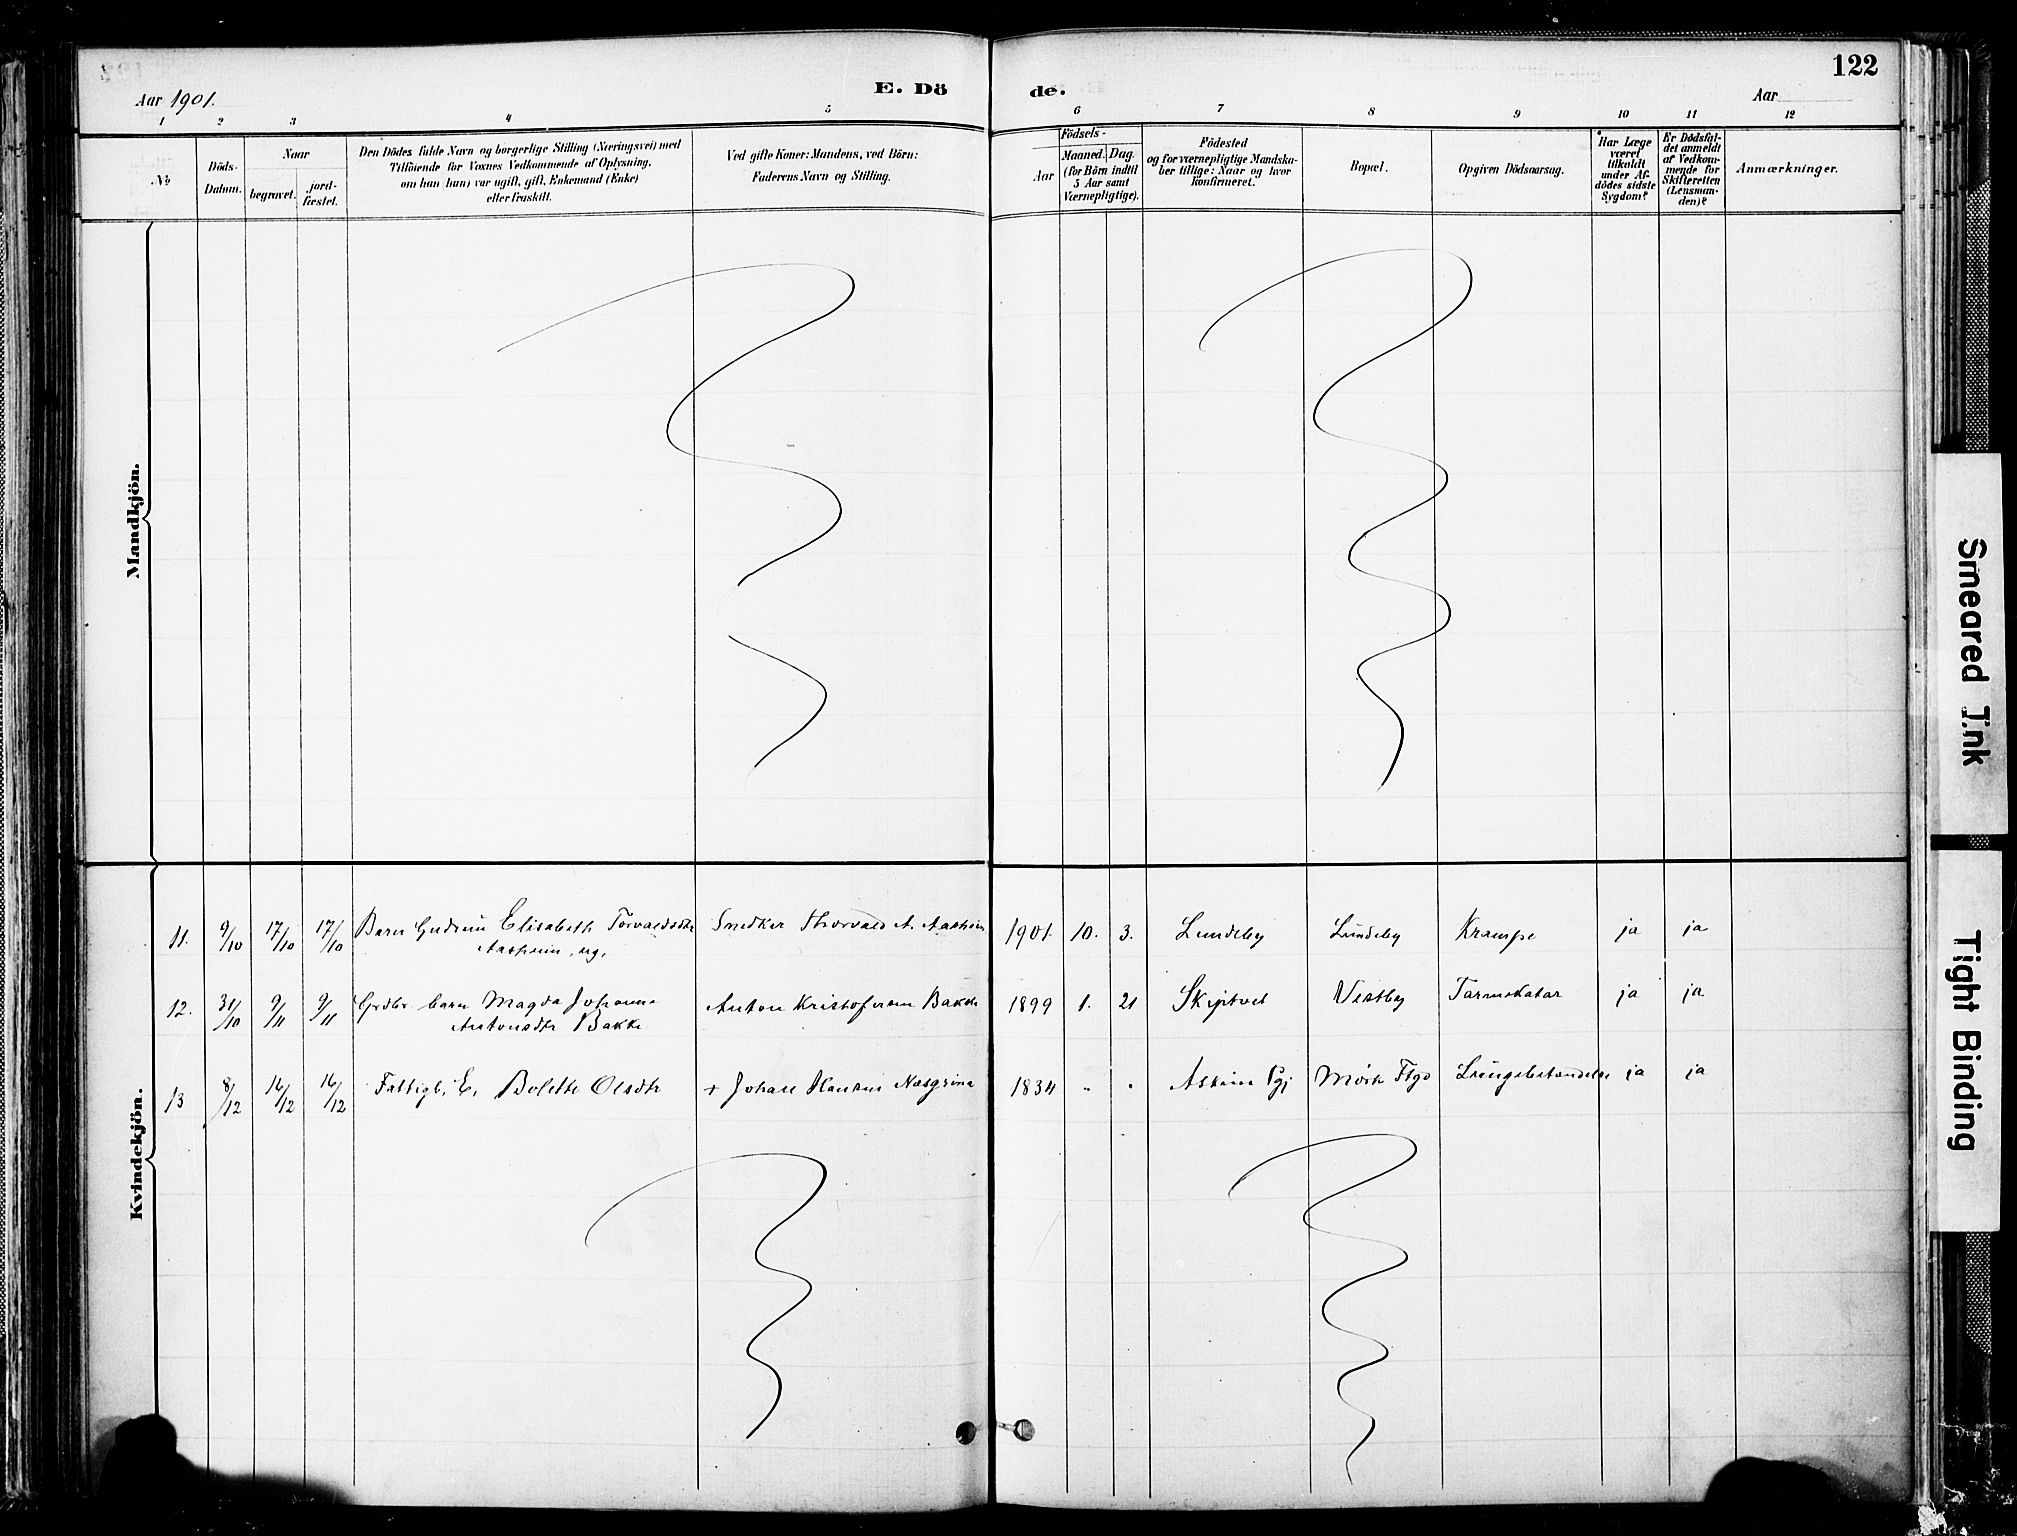 122
Aar 1901.
E. Dö
de.
Aar
1 2 3 4 5 6 7 8 9 10 11 12
No
Döds-
Datum.
Naar
begravet.
jord-
fæstet.
Den Dödes fulde Navn og borgerlige Stilling (Næringsvei) med
Tilföiende for Voxnes Vedkommende af Oplysning,
om han (hun) var ugift, gift, Enkemand (Enke)
eller fraskilt.
Ved gifte Koner: Mandens, ved Börn:
Faderens Navn og Stilling.
Födsels-
Aar
Maaned.
Dag.
(for Börn indtil
5 Aar samt
Værnepligtige).
Födested
og for værnepligtige Mandska-
ber tillige: Naar og hvor
konfirmeret.
Bopæl.
Opgiven Dödsaarsag.
Har Læge
været
tilkaldt
under Af-
dödes sidste
Sygdom?
Er Dödsfal-
det anmeldt
af Vedkom-
mende for
Skifteretten
(Lensman-
den)?
Anmærkninger.
Mandkjön.
Kvindekjön.
11. 9/10 17/10 17/10 Barn Gudrun Elisabeth Torvaldsdtr Smedker Thorvald A. Aasheim 1901 10. 3. Lundeby Lundeby Krampe ja ja
Aasheim, ug.
12. 31/10 9/11 9/11 Grdbr barn Magda Johanne Anton Kristofersen Bakke 1899 1. 21 Skiptvet Vestby Tarmkatar ja ja
Antonsdtr Bakke
13 8/12 16/12 16/12 Fattigl. E. Bolette Olsdtr + Johan Hansen 1834 " " Askim Pgj Mörk Lungebetændelse ja ja
Smeared Ink
Tight Binding